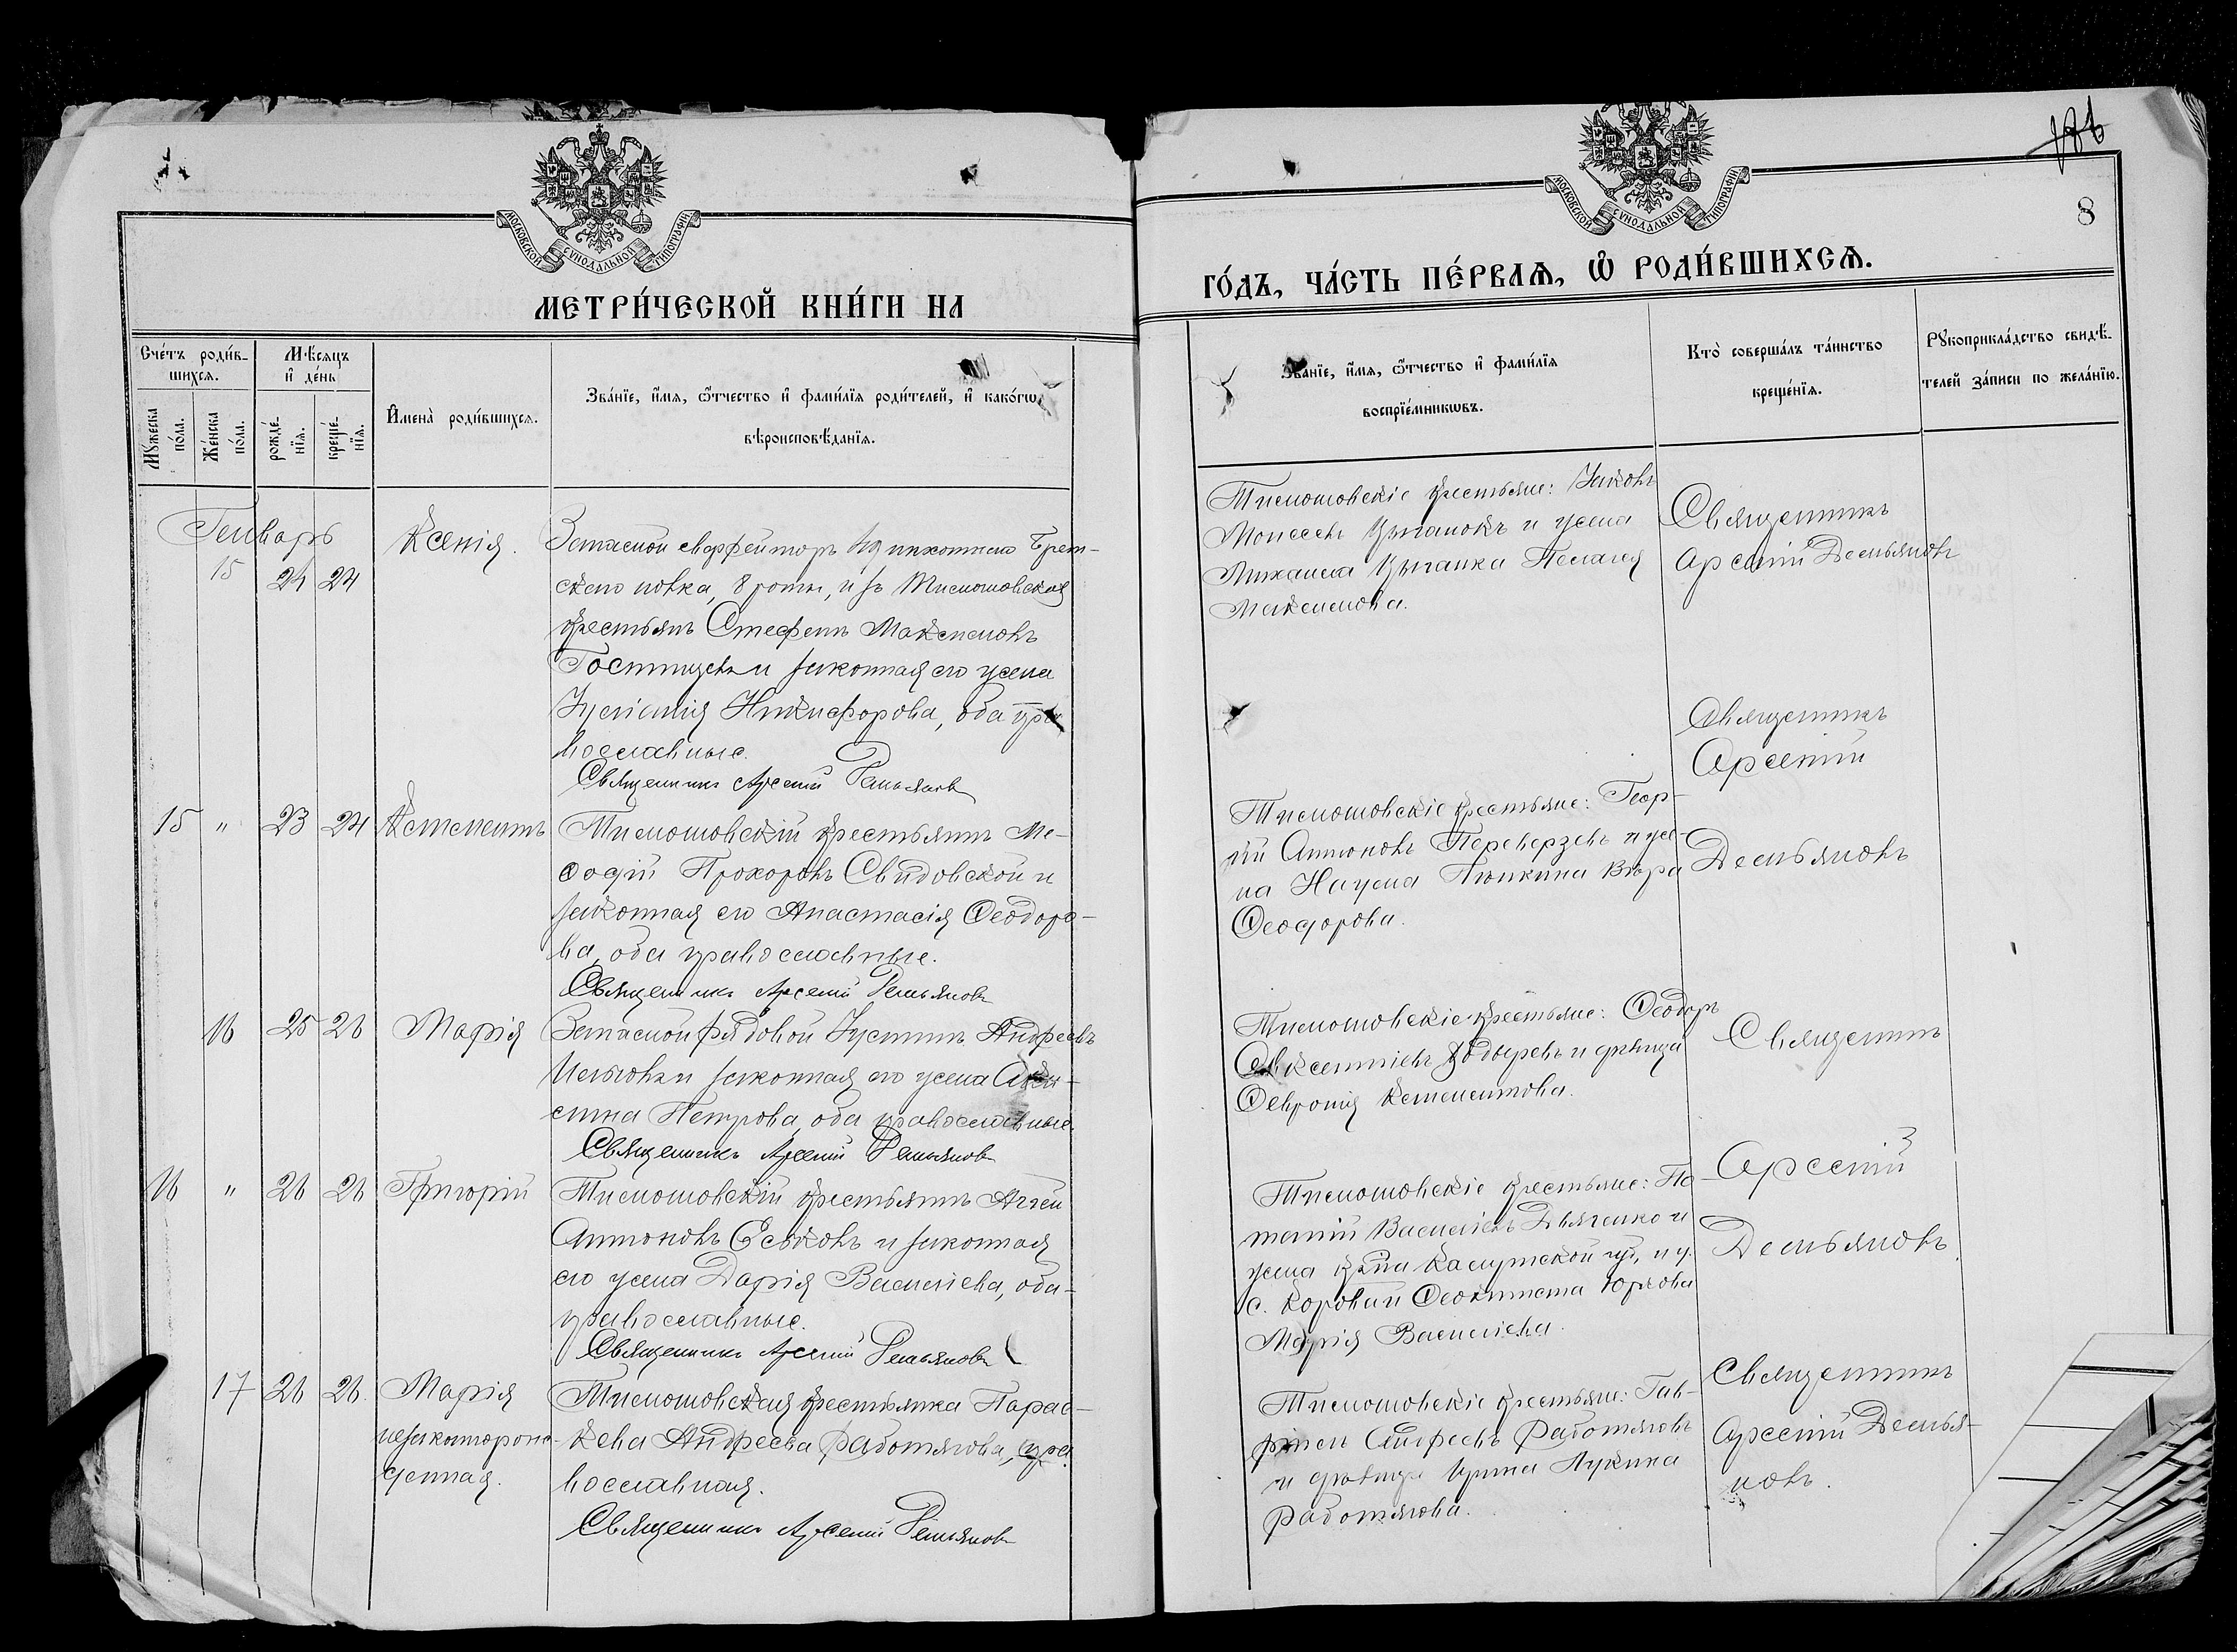 186
8
МОСКОВСКОЙ СУНОДАЛЬНОЙ ТИПОГРАФІИ
МОСКОВСКОЙ СУНОДАЛЬНОЙ ТИПОГРАФІИ
МЕТРИ́ЧЕСКОЙ КНИ́ГИ НА
ГО́ДЪ, ЧА́СТЬ ПЕ́РВАѦ, Ѡ РОДИ́ВШИХСѦ.
Сче́тъ роди́в-
шихсѧ.
Мꙋ́жеска
по́ла.
Же́нска
по́ла.
Мѣ́сѧцъ
и҆ де́нь
рожде́-
нїѧ.
креще́-
нїѧ.
И҆мена̀ роди́вшихсѧ.
Зва́нїе, и҆́мѧ, ѻ҆́тчество и҆ фами́лїѧ роди́телей, и҆ како́гѡ
вѣроисповѣ́данїѧ.
Зва́нїе, и҆́мѧ, ѻ҆́тчество и҆ фами́лїѧ
воспрїе́мникѡвъ.
Кто̀ соверша́лъ та́инство
креще́нїѧ.
Рꙋкоприкла́дство свидѣ́-
телей за́писи по жела́нїю.
Генварь
15 24 24
Ксенія.
Запасной ефрейторъ пихотнаго Брест-
скаго полка, 8 роты, изъ Тимошовскихъ
крестьянъ Стефанъ Максимовъ
Гостищевъ и законная его жена
Никифорова, оба пра
вославные.
Священникъ Арсеній Демьяновъ
Тимошовскіе крестьяне: Іаковъ
Моисеевъ Цыганокъ и жена
Михаила Цыганка Пелагея
Максимова.
Священникъ
Арсеній Демьяновъ
15 " 23 24
Климентъ
Тимошовскій крестьянинъ Ме-
ѳодій Прохоровъ Свидовской и
законная его Анастасія Ѳеодоро-
ва, оба православные.
Священникъ Арсеній Демьяновъ
Тимошовскіе крестьяне: Геор-
гій Антоновъ Переверзевъ и же-
на Наума Тюпкина Вѣра
Ѳеодорова.
Священникъ
Арсеній
Демьяновъ
16 25 26
Марія
Запасной рядовой Іустинъ Андреевъ
и законная его жена
Петрова, оба православные.
Священникъ Арсеній Демьяновъ
Тимошовскіе крестьяне: Ѳеодоръ
и дѣвица
Ѳеврония Климентова.
Священникъ
16 " 26 26
Григорій
Тимошовскій крестьянинъ Аггей
Антоновъ Еськовъ и законная
его жена Дарія Василіева, оба
православные.
Священникъ Арсеній Демьяновъ
Тимошовскіе крестьяне: По-
тапій Василіевъ и
жена
с. Ѳеоктиста Юркова
Марія Василіева.
Арсеній
Демьяновъ
17 26 26.
Марія
незаконнорож-
денная.
Тимошовская крестьянка Парас-
кева Андреева Работягова, пра-
вославная.
Священникъ Арсеній Демьяновъ
Тимошовскіе крестьяне: Гав-
ріилъ Андреевъ Работяговъ
и дѣвица Ирина Лукина
Работягова.
Священникъ
Арсеній Демья-
новъ.